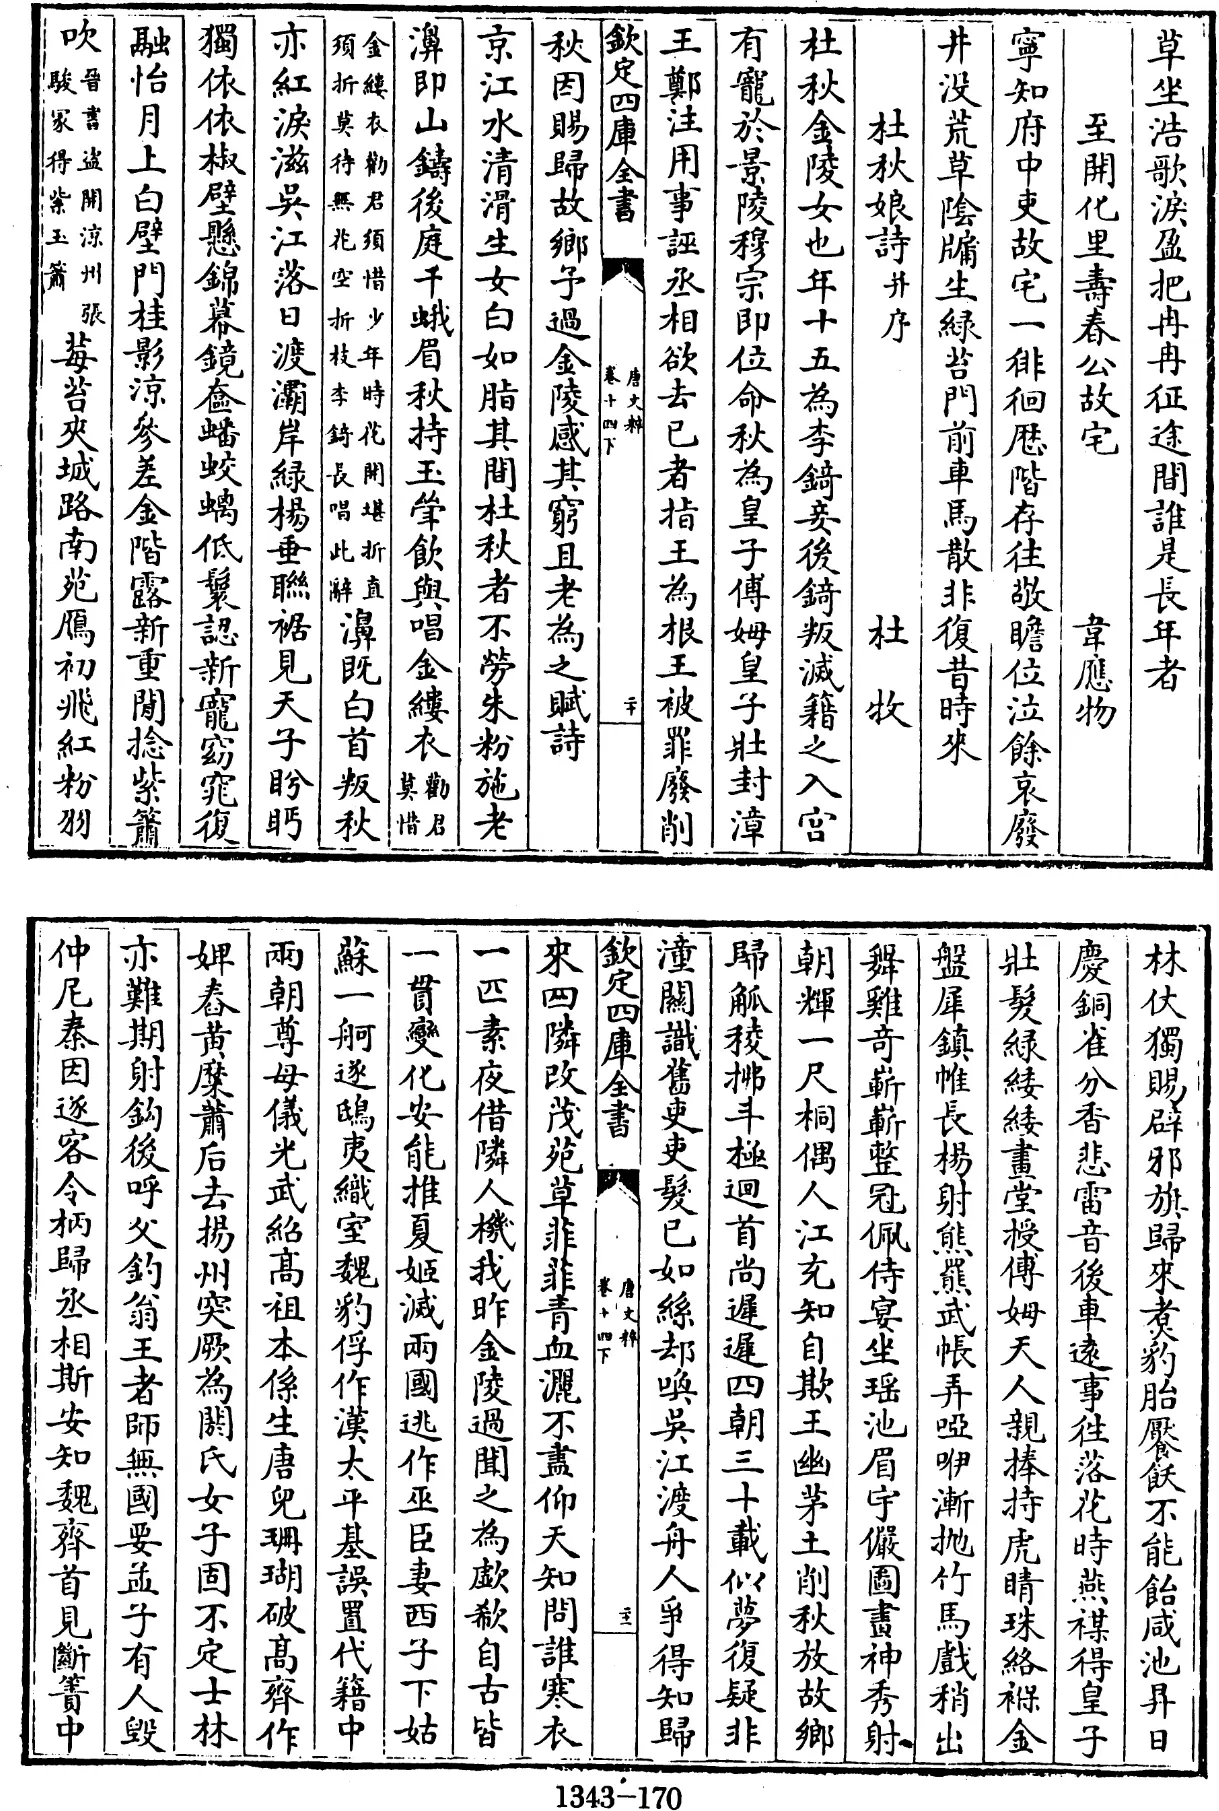 草坐浩歌淚盈把冉冉征途間誰是長年者
至開化里壽春公故宅　韋應物
寧知府中吏故宅一徘徊歴階存往敬瞻位泣餘哀廢
井没荒草陰牖生緑苔門前車馬散非復昔時來
杜秋娘詩并序　杜牧
杜秋金陵女也年十五為李錡妾後錡叛滅籍之入宫
有寵於景陵穆宗即位命秋為皇子傅姆皇子壯封漳
王鄭注用事誣丞相欲去已者指王為根王被罪廢削
欽定四庫全書　唐文粹卷十四下　二十
秋因賜歸故鄉予過金陵感其窮且老為之賦詩
京江水清滑生女白如脂其間杜秋者不勞朱粉施老
濞即山鑄後庭千蛾眉秋持玉斝飲與唱金縷衣勸君莫惜
金縷衣勸君須惜少年時花開堪折直須折莫待無花空折枝李錡長唱此辭濞既白首叛秋
亦紅淚滋吳江落日渡灞岸緑楊垂聯裾見天子盻眄
獨依依椒壁懸錦幕鏡奩蟠蛟螭低鬟認新寵窈窕復
融怡月上白壁門桂影凉參差金階露新重閒捻紫簫
吹晉書盗開涼州張駿冢得紫玉簫莓苔夾城路南苑鴈初飛紅粉羽
林仗獨賜辟邪旗歸來煮豹胎饜飫不能飴咸池昇日
慶銅雀分香悲雷音後車遠事徃落花時燕禖得皇子
壯髮緑緌緌畫堂授傅姆天人親捧持虎睛珠絡褓金
盤犀鎮帷長楊射熊羆武帳弄啞咿漸抛竹馬戲稍出
舞雞奇嶄嶄整冠佩侍宴坐瑶池眉宇儼圖畫神秀射
朝輝一尺桐偶人江充知自欺王幽茅土削秋放故鄉
歸觚稜拂斗極迴首尚遲遲四朝三十載似夢復疑非
潼關識舊吏吏髮已如絲却喚吳江渡舟人爭得知歸
欽定四庫全書　唐文粹卷十四下　二十一
來四隣改茂苑草菲菲青血灑不盡仰天知問誰寒衣
一匹素夜借隣人機我昨金陵過聞之為歔欷自古皆
一貫變化安能推夏姬滅兩國逃作巫臣妻西子下姑
蘇一舸逐鴟夷織室魏豹俘作漢太平基誤置代籍中
兩朝尊母儀光武紹髙祖本係生唐兒珊瑚破髙齊作
婢舂黄糜蕭后去揚州突厥為閼氏女子固不定士林
亦難期射鈎後呼父釣翁王者師無國要孟子有人毁
仲尼秦因逐客令柄歸丞相斯安知魏齊首見斷簀中
1343-170